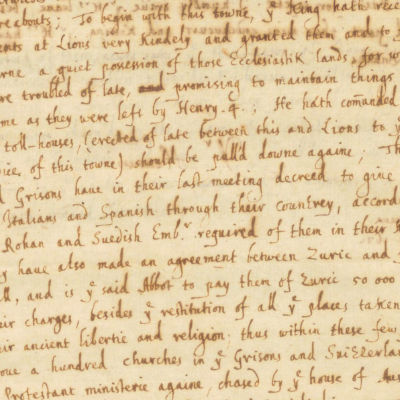 reabouts; To begin with this towne, yᵉ King hath rece
ents at Lions very kindely and granted them and to
rne a quiet possession of those Ecclesiastik lands, for w
re troubled of late, and promising to maintain things
me as they were left by Henry .4. ; He hath comanded
toll-houses, (erected of late between this and Lions to yᵉ
ice, of this towne) should be pull'd downe againe; Th
d Grisons haue in their last meeting decreed to give
Italians and Spanish through their countrey, accord
Rohan and Suedish Embʳ. required of them in their
y have also made an agreement between Zuric and
ll, and is yᵉ said Abbot to pay them of Zuric 50 000
eir charges, besides yᵉ restitution of all yᵉ places taken
eir ancient libertie and religion; thus within these few
oue a hundred churches in yᵉ Grisons and Suizzerlan
Protestant ministerie againe, chased by yᵉ house of Aus